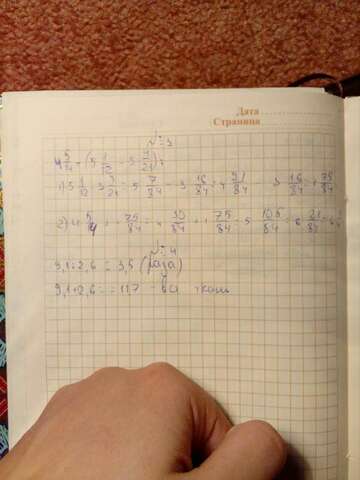 Дата
Страница
№ 3
4 5/14 + (5 1/12 - 3 4/21) =
1) 5 1/12 - 3 4/21 = 5 7/84 - 3 16/84 = 4 91/84 - 3 16/84 = 1 75/84
2) 4 5/14 + 1 75/84 = 4 30/84 + 1 75/84 = 5 105/84 = 6 21/84 = 6
№ 4
9,1 : 2,6 = 3,5 (раза)
9,1 + 2,6 = 11,7 - ткани